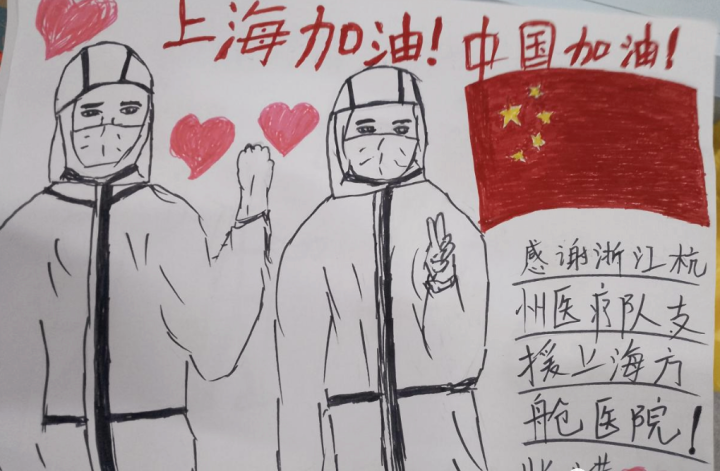 上海加油!中国加油!
感谢浙江杭
州医疗队支
援上海方
舱医院!